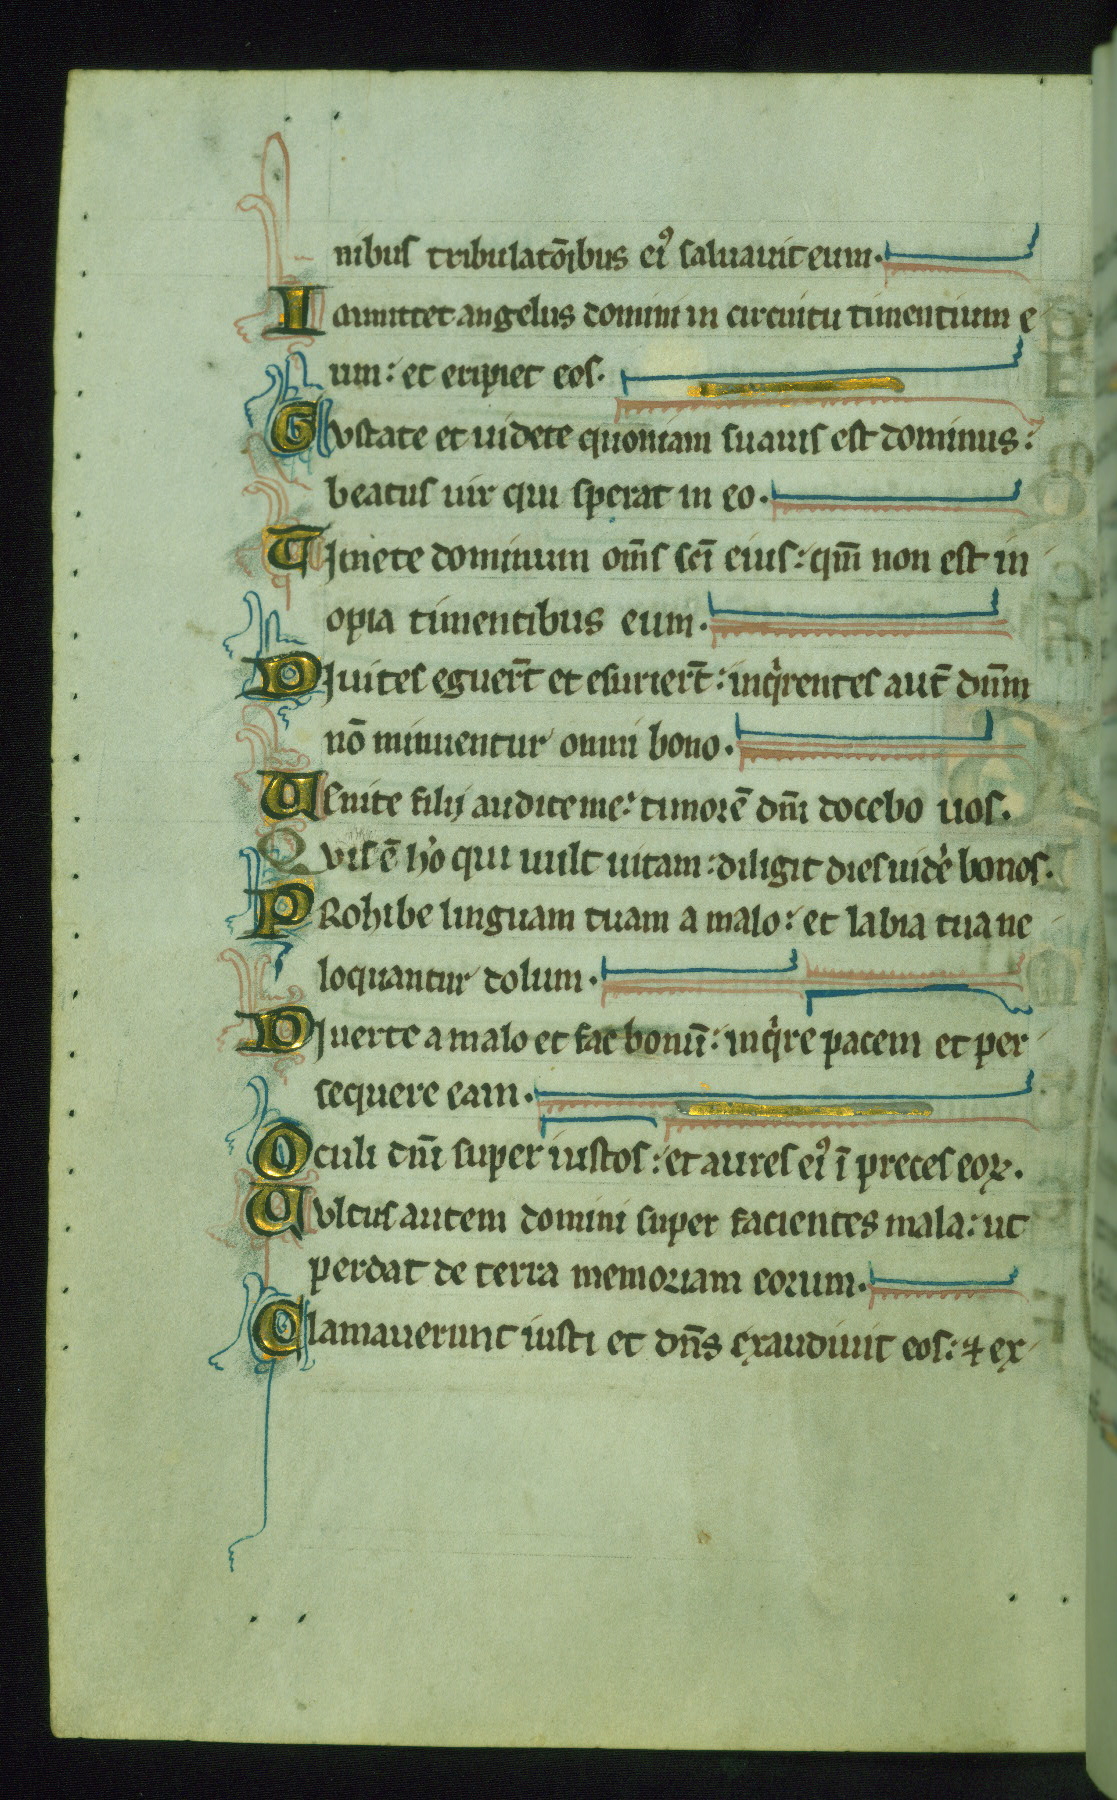 nibus tribulatōibus eiꝰ saluauit eum.
Inmittet angelus domini in circuitu timentium e
um: et eripiet eos.
Gvstate et uidete quoniam suauis est dominus:
beatus uir qui sperat in eo.
Timete dominum om̄s sc̄i eius: qm̄ non est in
opia timentibus eum.
Diuites eguer̄t et esurier̄t: inqͥrentes aut̄ dn̄m
nō minuentur omni bono.
Uenite filij audite me: timorē dn̄i docebo uos.
Qvis ē hͦo qui uult uitam: diligit dies uidē bonos.
PRohibe linguam tuam a malo: et labia tua ne
loquantur dolum.
Diuerte a malo et fac bonū: inqͥre pacem et per
sequere eam.
Oculi dn̄i super iustos: et aures eiꝰ ī preces eoꝝ.
Uvltus autem domini super facientes mala: ut
perdat de terra memoriam eorum.
Clamauerunt iusti et dn̄s exaudiuit eos: ⁊ ex